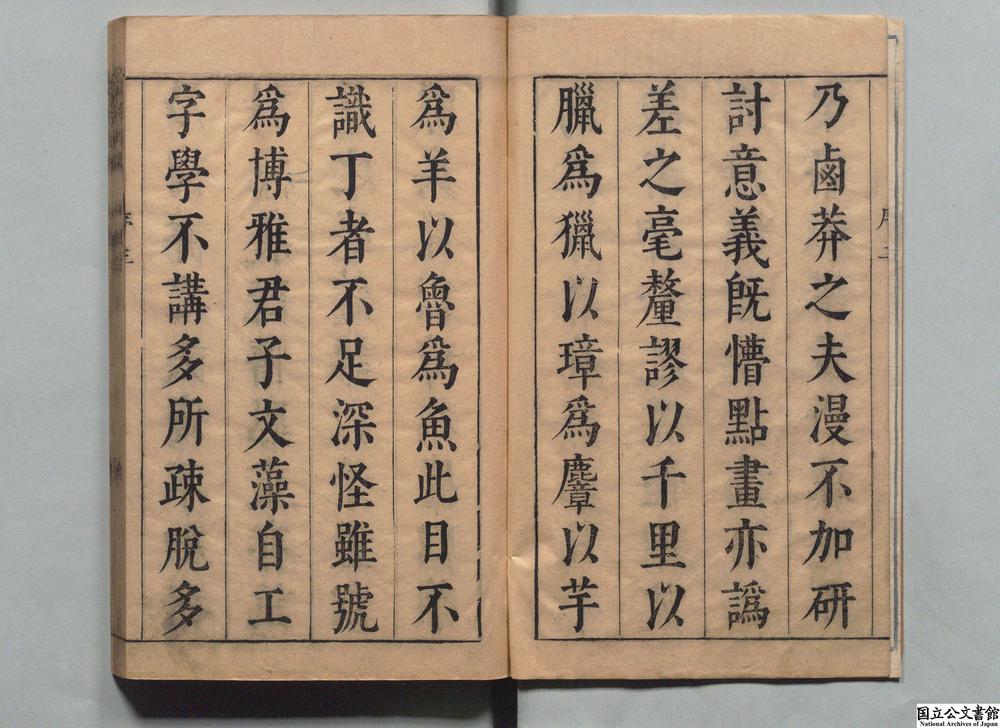 乃鹵莽之夫漫不加研
討意義旣懵點畫亦譌
差之毫釐謬以千里以
臘爲獵以璋爲麞以芋
爲羊以魯爲魚此目不
識丁者不足深怪雖號
爲博雅君子文藻自工
字學不講多所疎脫多
国立公文書館
National Archives of Japan